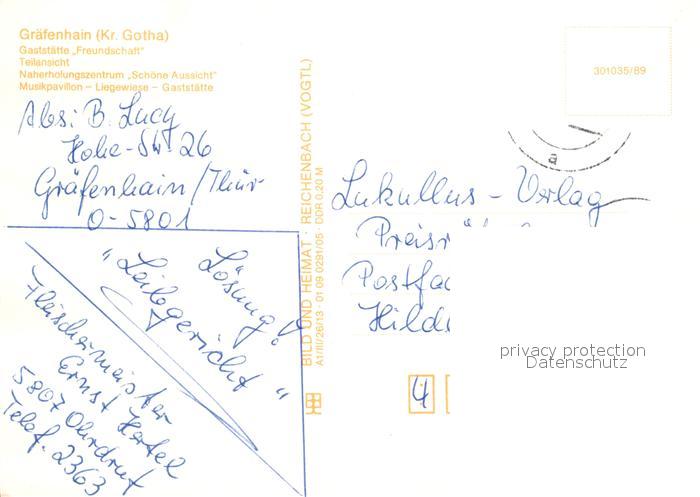 Gräfenhain (Kr. Gotha)
Gaststätte „Freundschaft"
Teilansicht
Naherholungszentrum „Schöne Aussicht"
Musikpavillon – Liegewiese – Gaststätte
Abs: B. Lucy
Hohe-Str. 26
Gräfenhain/Thür
O-5801
Lösung!
"Leibgericht"
Fleischermeister
Ernst Hertel
5807 Ohrdruf
Telef. 2363
BILD UND HEIMAT · REICHENBACH (VOGTL)
A1/III/26/13 · 01 09 0291/05 · DDR 0,20 M
301035/89
a
Lukullus-Verlag
Preisr
Postfac
Hild
privacy protection
Datenschutz
4